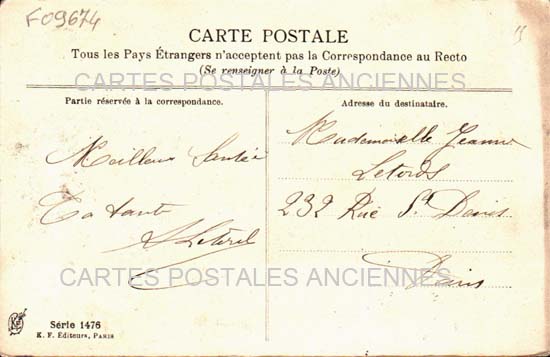 F09674
CARTE POSTALE
Tous les Pays Étrangers n'acceptent pas la Correspondance au Recto
(Se renseigner à la Poste)
CARTES POSTALES ANCIENNES
Partie réservée à la correspondance.
Adresse du destinataire.
Meilleure Santée
Ta tante
Mademoiselle Jeanne
232 Rue St Denis
Paris
CARTES POSTALES ANCIENNES
Série 1476
K. F. Éditeurs, PARIS